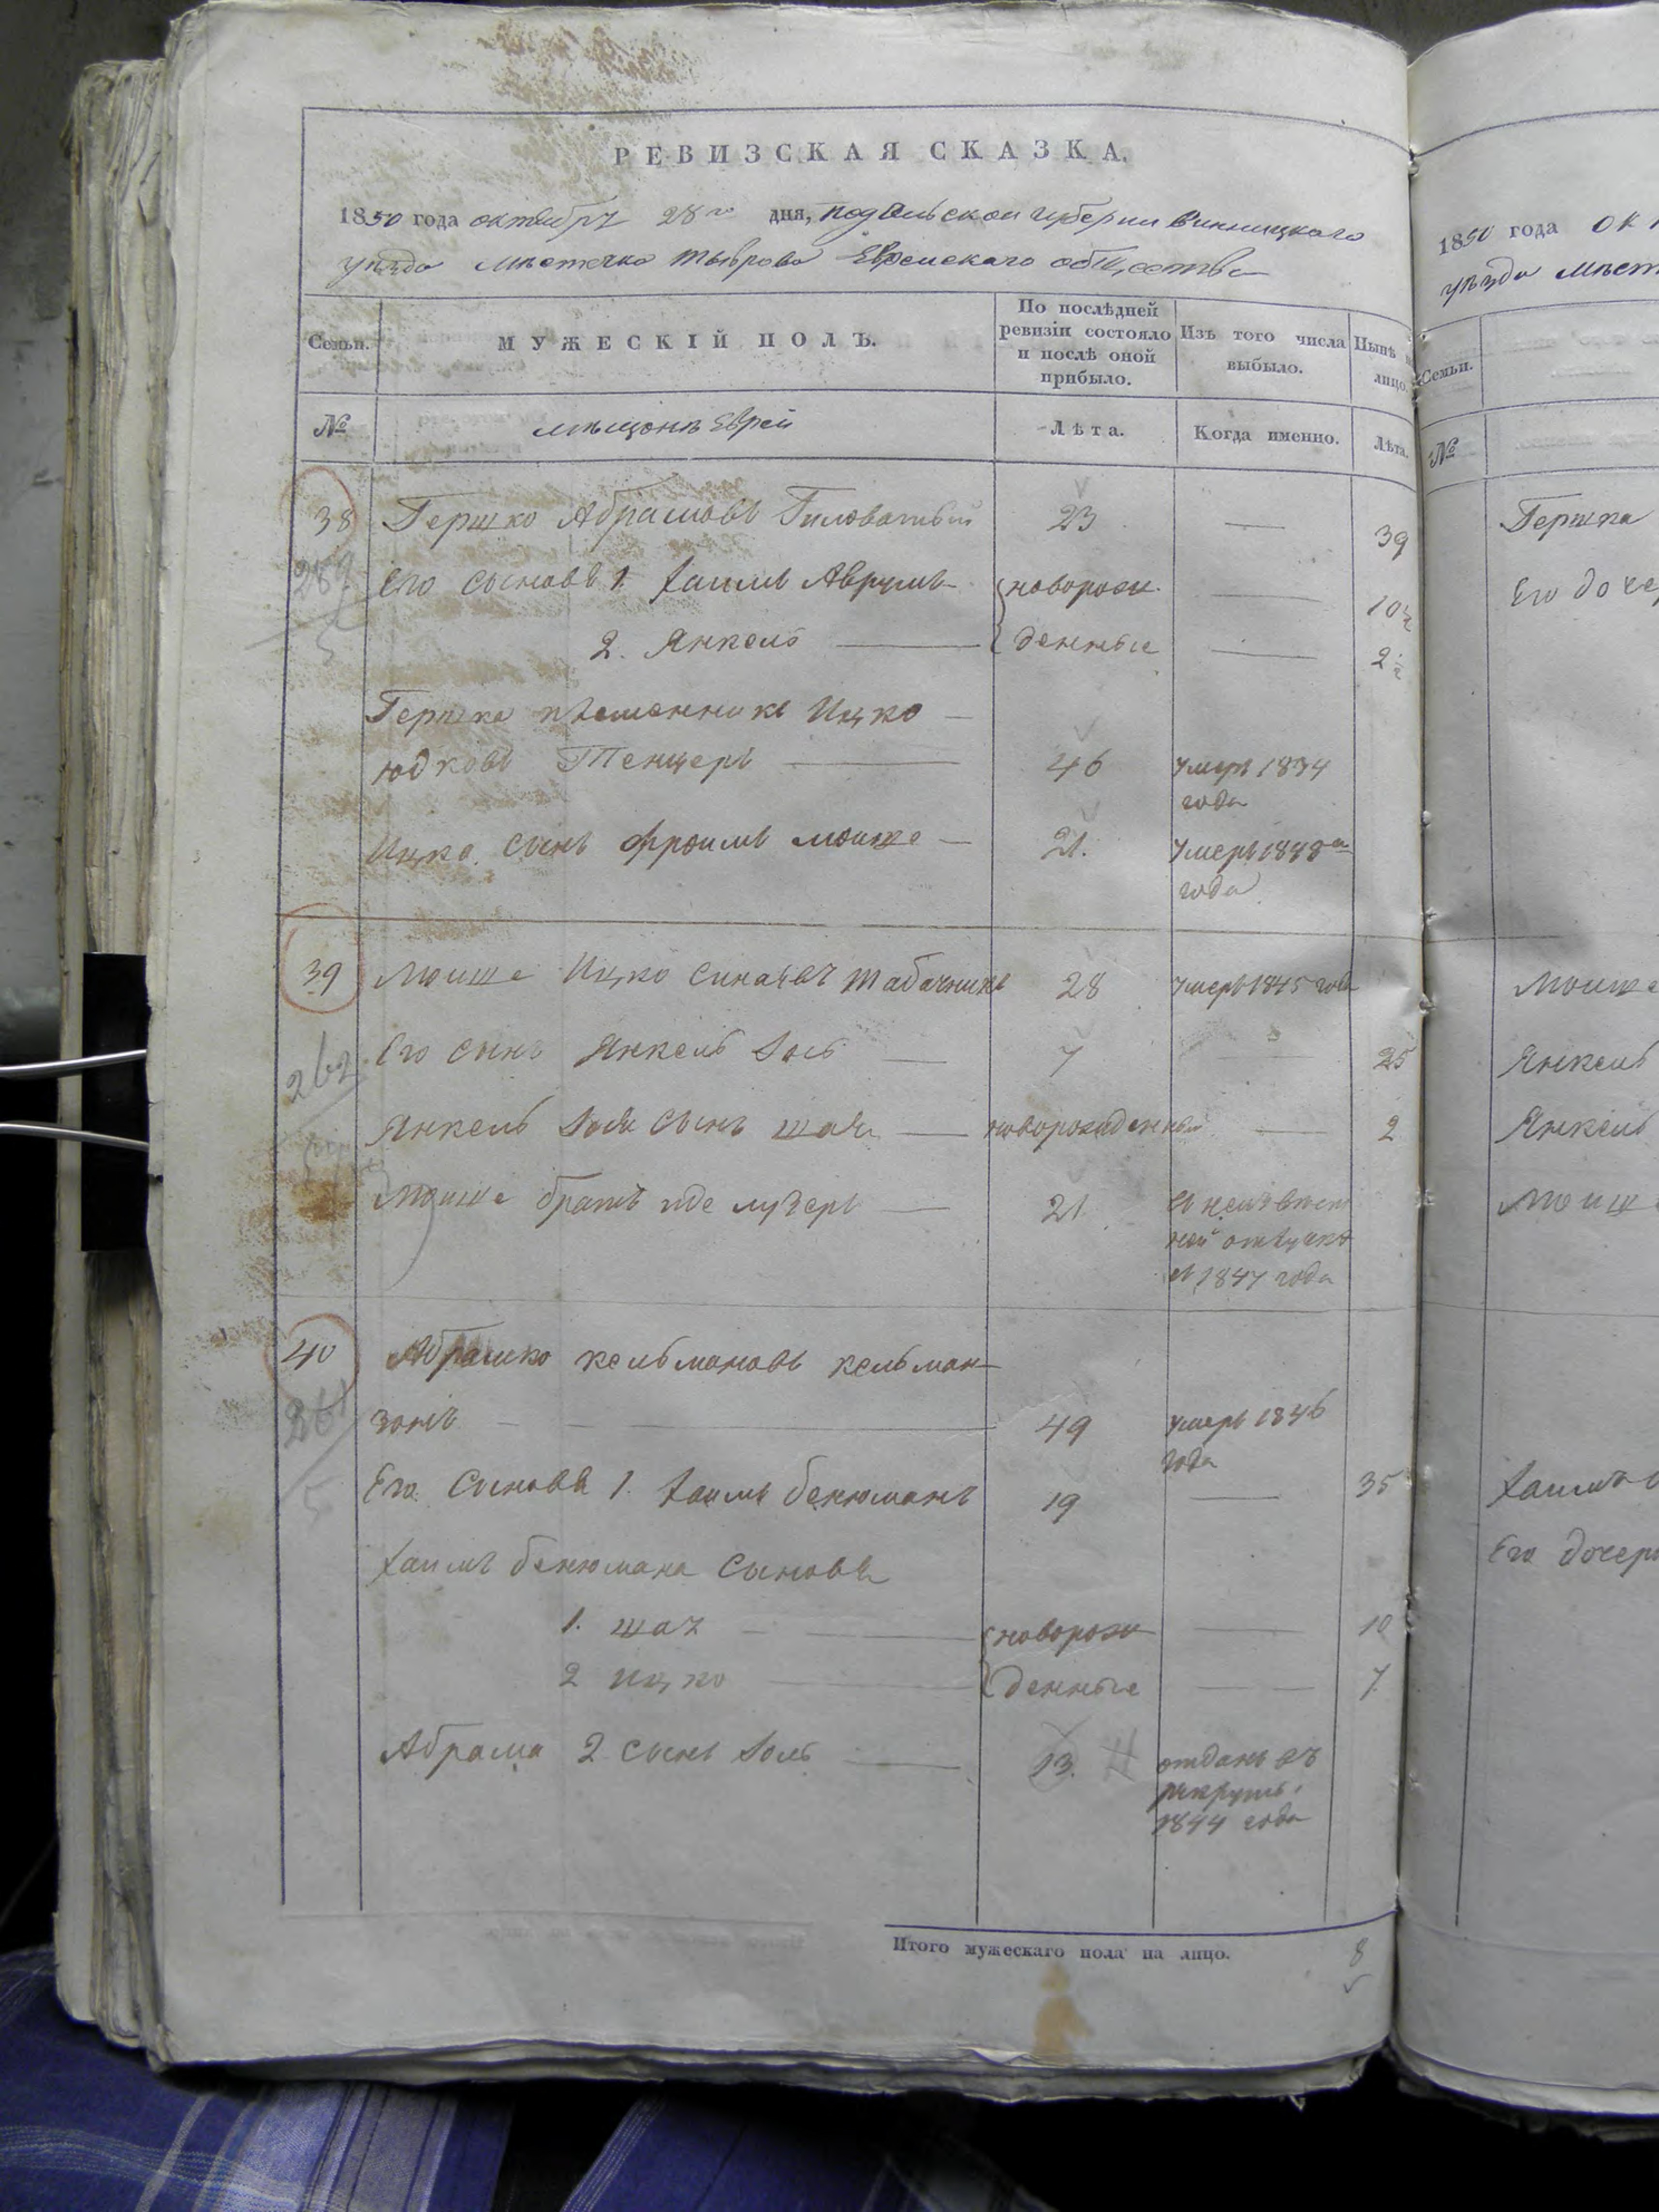 РЕВИЗСКАЯ СКАЗКА.
1850 года октября 28го дня, подольской губернии винницкаго
уѣзда мѣстечка тыврова Еврейскаго общества
Семьи. МУЖЕСКІЙ ПОЛЪ. По послѣдней ревизіи состояло и послѣ оной прибыло. Изъ того числа выбыло. Нынѣ на лицо.
№ мѣщанъ Еврей Лѣта. Когда именно. Лѣта.
38 Гершко Абрамовъ Гиловатый 23 — 39
Его сыновья 1. Хаимъ Аврумъ новорож — 10½
2. Янкель — денные — 2½
Гершка племенникъ Ицко —
юдковъ Тенцеръ — 46 умеръ 1834
года
Ицка сынъ Фроимъ мошке — 21. умеръ 1848
года
39 Мошке Ицко синаевъ табачникъ 28 умеръ 1845 года
262
Его сынъ Янкель Іось — 7 — 25
Янкель Іося сынъ шая — новорожденный — 2
Мошке братъ иде лузеръ — 21 в неизвѣст
ной отлучке
с 1847 года
40 Абрамко кельмановъ кельман
261
зонъ — 49 умеръ 1846
года
5
Его Сыновья 1. Хаимъ бенюманъ 19 — 35
Хаимъ бенюмана Сыновья
1. шая — новорож — 10
2 ицко — денные — 7
Абрама 2 сынъ Іось — 13. отданъ въ
рекруты
1844 года
Итого мужескаго пола на лицо. 8
1850 года ок
уѣзда мѣст
Семьи.
№
Гершка
Его доче
Мошке
Янкель
Янкель
Мошк
Хаима
Его дочери